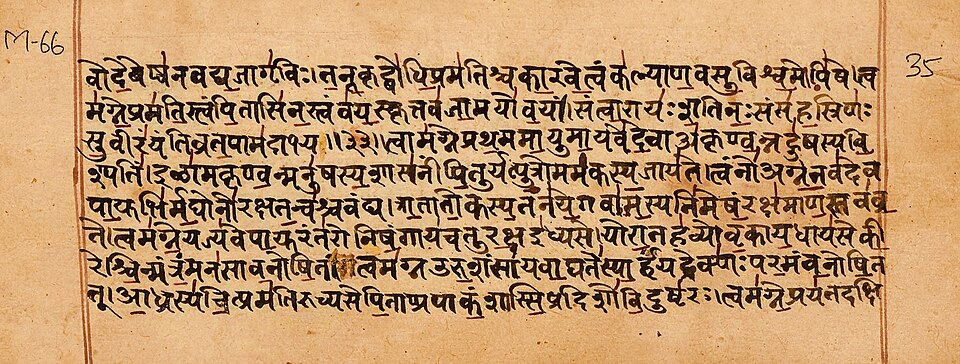 M-66
35
वो देवेष्वनवद्य जागृविः । तनूकृद्बोधि प्रमतिश्च कारवे त्वं कल्याण वसु विश्वमोपिषे । त्व
मग्ने प्रमतिस्त्वं पितासि नस्त्वं वयस्कृत्तव जामयो वयं । सं त्वा रायः शतिनः सं सहस्रिणः
सुवीरं यंति व्रतपामदाभ्य ॥३३॥ त्वामग्ने प्रथममायुमायवे देवा अकृण्वन्नहुषस्य वि
श्पतिं । इळामकृण्वन्मनुषस्य शासनीं पितुर्यत्पुत्रो ममकस्य जायते । त्वं नो अग्ने तव देव
पायुभिर्मघोनो रक्ष तन्वश्च वंद्य । त्राता तोकस्य तनये गवामस्यनिमेषं रक्षमाणस्तव व्र
ते । त्वमग्ने यज्यवे पायुरंतरोनिषंगाय चतुरक्ष इध्यसे । यो रातहव्योवृकाय धायसे की
रेश्चिन्मंत्रं मनसा वनोषि तं । त्वमग्न उरुशंसाय वाघते स्पार्हं यद्रेक्णः परमं वनोषि त
त् । आध्रस्य चित्प्रमतिरुच्यसे पिता प्र पाकं शास्सि प्र दिशो विदुष्टरः । त्वमग्ने प्रयतदक्षि